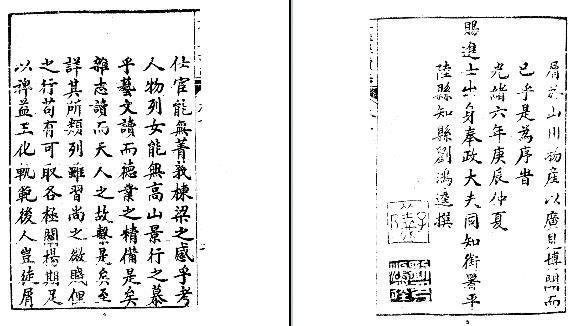 仕宦能無菁莪棟梁之感乎考
人物列女能無高山景行之慕
乎藝文讀而德業之精備是矣
雜志讀而天人之故繫是矣至
詳其所類列雖習尚之微賤俚
之行苟有可取各極闡揚期足
以裨益王化軌範後人豈徒屑
屑於山川物產以廣見博聞而
已乎是為序旹
光緒六年庚辰仲夏
賜進士出身奉政大夫同知銜署平
陸縣知縣劉鴻逵撰